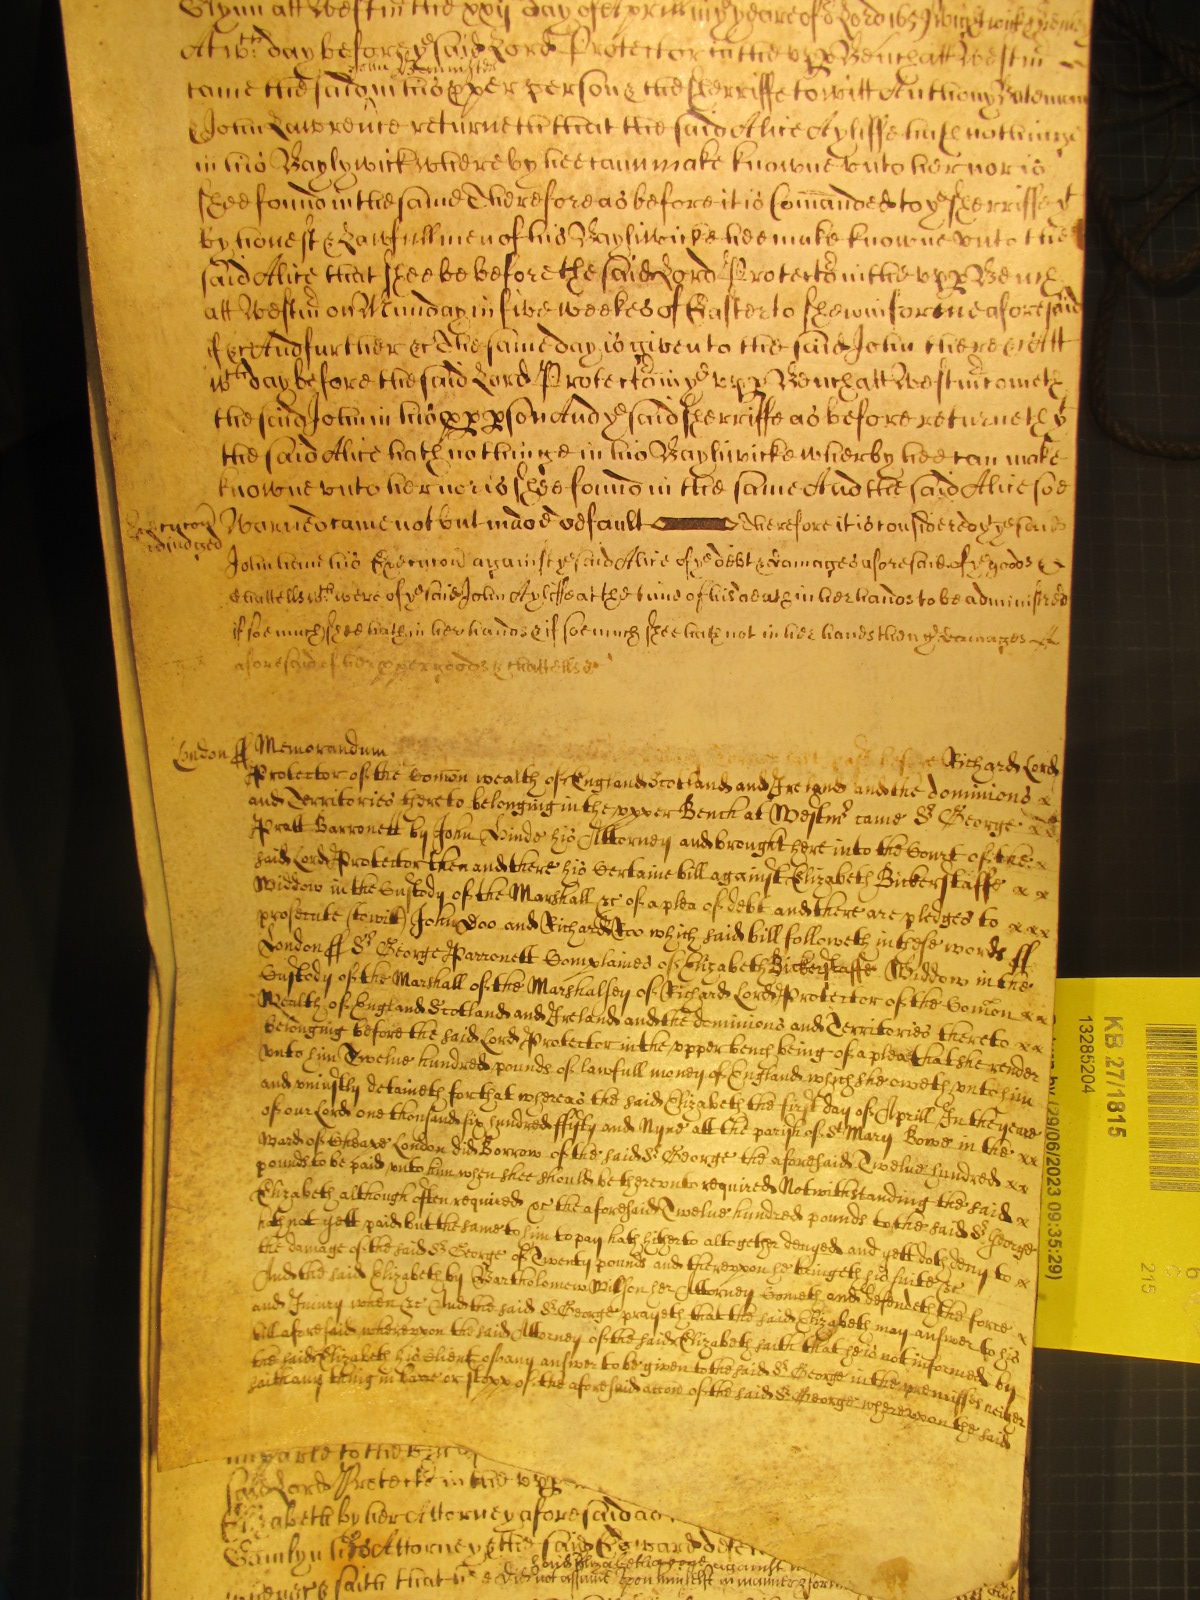 Glynn att Westm the xxij day of Aprill in ye yeare of or Lord
At wch day before ye said Lord Protector in the upp Bench att Westm
John
came the said in his pper person & the sherriffe to witt Anthony
John Lawrence returneth that the said Alice Ayliffe hath nothinge
in his Baylywick whereby hee cann make knowne unto her nor is
shee found in the same Therefore as before it is Comanded to ye sherriffe yt
by honest & Lawfull men of his Bayliwicke hee make knowne unto the
said Alice that shee be before the said Lord Protector in the upp Bench
att Westm on Munday in five weekes of Easter to shew in forme aforesaid
if &c And further &c The same day is given to the said John there &c Att
wch day before the said Lord Protector in ye upp Bench att Westm cometh
the said John in his pp pson And ye said sherriffe as before returneth yt
the said Alice hath nothinge in his Bayliwicke wherby hee can make
knowne unto her nor is shee found in the same And the said Alice soe
Execucon
adiudged
Warned came not but made default therefore it is considered yt ye said
John have his Execucon against ye said Alice of ye debt & damages aforesaid of ye goods &
chattells wch were of ye said John Ayliffe at the time of his death in her hands to be administred
if soe much shee hath in her hands & if soe much shee hath not in her hands then ye damages
aforesaid of her pper goods & chattells &c
London ss Memorandum before Richard Lord
Protector of the Comon wealth of England Scotland and Ireland and the dominions x
and Territories thereto belonging in the upper Bench at Westmr came Sr George xx
Pratt Barronett by John Hinde his Attorney and brought here into the Court of the x
said Lord Protector then and there his Certaine bill against Elizabeth Bickerstaffe x x
Widdow in the Custody of the Marshall &c of a plea of debt and there are pledges to xxx
prosecute (to witt) John Doo and Richard Roo which said bill followeth in these words ss
London ss Sr George Parronett Complaines of Elizabeth Bickerstaffe Widdow in the
Custody of the Marshall of the Marshalsey of Richard Lord Protector of the Comon xx
Wealth of England Scotland and Ireland and the dominions and Territories thereto xx
belonging before the said Lord Protector in the upper bench being of a plea that she render
unto him Twelve hundred pounds of lawfull money of England which she oweth unto him
and uniustly detaineth for that whereas the said Elizabeth the first day of Aprill In the yeare
of our Lord one thousand six hundred fifty and Nyne att the parish of St Mary Bowe in the xx
Ward of Cheape London did Borrow of the said Sr George the aforesaid Twelve hundred xx
pounds to be paid unto him when shee should be thereunto required Notwithstanding the said x
Elizabeth although often required &c the aforesaid Twelve hundred pounds to the said Sr George
hath not yett paid but the same to him to pay hath hitherto altogether denyed and yett doth deny to x
the damage of the said Sr George of Twenty pounds and thereupon he bringeth his suite &c
And the said Elizabeth by Bartholomew Willson her Attorney Cometh and defendeth the force x
and Iniury when &c And the said Sr George prayeth that the said Elizabeth may answer to his
bill aforesaid whereupon the said Attorney of the said Elizabeth saith that he is not informed by
the said Elizabeth his Client of any answer to be given to the said Sr George in the premisses neither
saith any thing in barre or stopp of the aforesaid accon of the said Sr George whereupon the said
imparle to the
said Lord Protector in the upp
Elizabeth by her Attorney aforesaid
Gamlyn his Attorney & the said Edward
said Elizabeth against
saith that he did not assume upon himself in manner & forme
KB 27/1815
13285204
(29/06/2023 09:35:29)
215